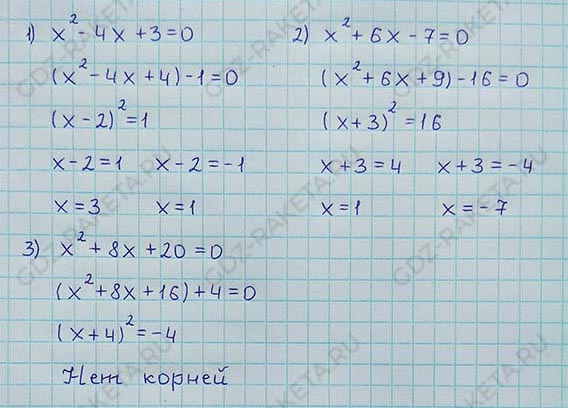 1) x² - 4x + 3 = 0
(x² - 4x + 4) - 1 = 0
(x - 2)² = 1
x - 2 = 1 x - 2 = -1
x = 3 x = 1
2) x² + 6x - 7 = 0
(x² + 6x + 9) - 16 = 0
(x + 3)² = 16
x + 3 = 4 x + 3 = -4
x = 1 x = -7
3) x² + 8x + 20 = 0
(x² + 8x + 16) + 4 = 0
(x + 4)² = -4
Нет корней
GDZ-RAKETA.RU